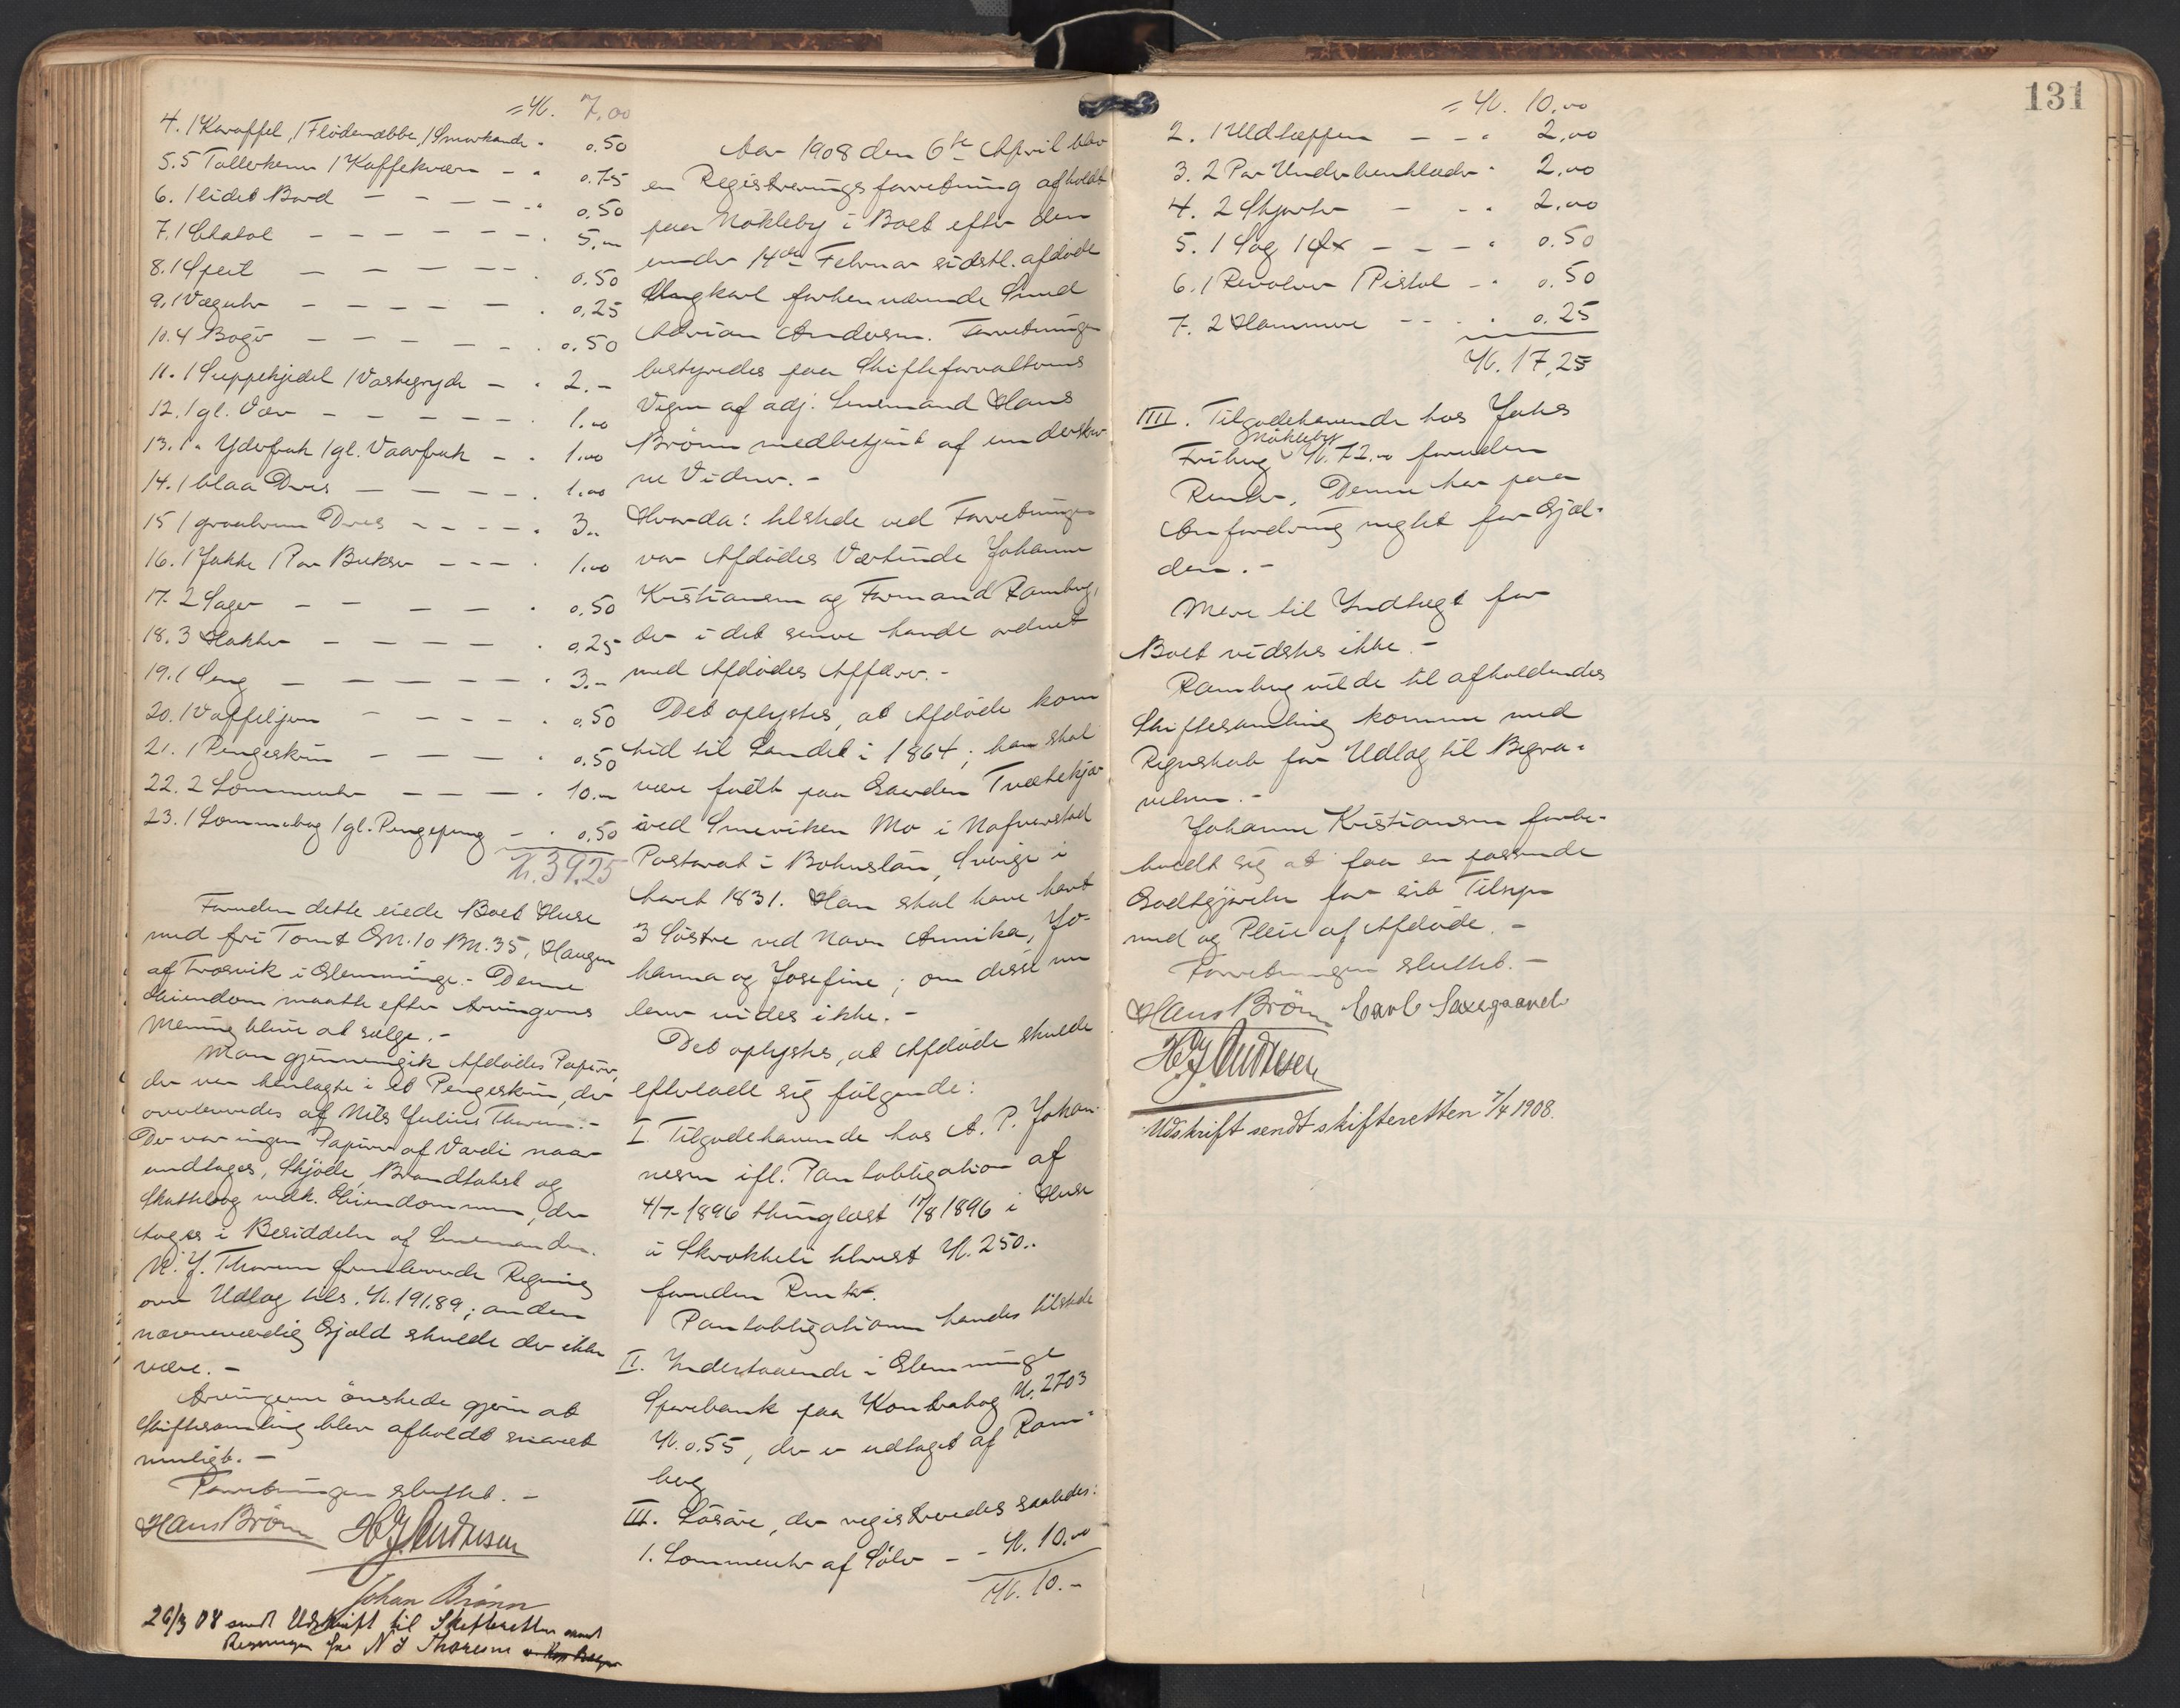 = Kr. 7,00
4. 1 Karaffel, 1 Flödemebbe, 1 Smørkande " 0.50
5. 5 Tallerkener 1 Kaffekværn - " 0.75
6. 1 lidet Bord - - - - " 0.50
7. 1 Chatol - - - - - - " 5.-
8. 1 Speil - - - - - " 0.50
9. 1 Væguhr - - - - - " 0,25
10. 4 Bøger - - - - - " 0.50
11. 1 Suppekjedel 1 Vaskegryde - " 2.-
12. 1 gl. Væv - - - - - " 1.00
13. 1 " Yderfrak 1 gl. Vaarfrak - " 1.00
14. 1 blaa Dres - - - - " 1.00
15 1 graabrun Dres - - - - " 3..
16. 1 Jakke 1 Par Bukser - - - " 1.00
17. 2 Sager - - - - - " 0.50
18. 3 Hakker - - - - - " 0,25
19. 1 Seng - - - - - - " 3.-
20. 1 Vaffeljern - - - - " 0.50
21. 1 Pengeskrin - - - - " 0.50
22. 2 Lommeuhr - - - - " 10.-
23. 1 Lommebog 1 gl. Pengepung - " 0,50
Kr. 39.25
Foruden dette eiede Boet Huse
med fri Tomt Gn. 10 Bn. 35, Haugen
af Trosvik i Glemminge.- Denne
Eiendom maatte efter Arvingernes
Mening blive at sælge.-
Man gjennemgik Afdødes Papirer,
der var henlagte i et Pengeskrin, der
overleveredes af Nils Julius Thoresen.-
Der var ingen Papirer af Værdi naar
undtages, Skjöde, Brandtakst og
Skattebog vedk. Eiendommen, der
toges i Besiddelse af Lensmanden.
N. J. Thoresen fremleverede Regning
over Udlæg tils. Kr. 191.89; anden
nævneværdig Gjæld skulde der ikke
være.-
Arvingerne önskede gjerne at
Skiftesamling blev afholdt snarest
muligt.-
Forretningen sluttet.-
Hans Brönn H. J. Andresen
Johan Brönn
26/3 08 sendt Udskrift til Skifteretten samt
Regningen fra N J Thoresen
Aar 1908 den 6te April blev
en Registreringsforretning afholdt
paa Nökleby i Boet efter den
under 14de Februar sidstl. afdöde
Ungkarl forhenværende Smed
Adrian Andersen. Forretningen
bestyredes paa Skifteforvalterens
Vegne af adj. Lensmand Hans
Brönn medbetjent af underskrev-
ne Vidner.-
Hvorda: tilstede ved Forretningen
var Afdödes Værtinde Johanne
Kristiansen og Formand Ramberg,
der i det senere havde ordnet
med Afdödes Affærer.-
Det oplystes, at Afdöde kom
hid til Landet i 1864; han skal
være födt paa Gaarden Tvetekjær
ved Smeviken Mo i Nafverstad
Pastorat i Bohuslän, Sverige i
Aaret 1831. Han skal have havt
3 Söstre ved Navn Annika, Jo-
hanna og Josefine; om disse nu
lever vides ikke.-
Det oplystes, at Afdöde skulde
efterlade sig fölgende:
I. Tilgodehavende hos A. P. Johan-
nesen ifl. Pantobligation af
4/7-1896 thinglæst 17/8 1896 i Huse
i Skrokkeli tilrest Kr. 250..
foruden Renter.
Pantobligationen havdes tilstede
II. Indestaaende i Glemminge
Sparebank paa Kontrabog N. 2703
Kr. 0.55, der er udtaget af Ram-
berg
III. Lösöre, der registreredes saaledes:
1. Lommeuhr af Sölv - - Kr. 10.00
Kr. 10.-
131
= Kr. 10.00
2. 1 Uldtæppe - - " 2.00
3. 2 Par Underbenklæder " 2.00
4. 2 Skjorter - - " 2.00
5. 1 Sag 1 Öx - - - " 0.50
6. 1 Revolver 1 Pistol - " 0.50
7. 2 Hammere - - - " 0.25
Kr. 17,25
IIII. Tilgodehavende hos Johs
Friberg Nökleby Kr. 72.00 foruden
Renter. Denne har paa
Anfordring negtet for Gjæl-
den.-
Mere til Indtægt for
Boet vidstes ikke.-
Ramberg vilde til afholdendes
Skiftesamling komme med
Regnskab for Udlæg til Begra-
velsen.-
Johanne Kristiansen forbe-
holdt sig at faa en passende
Godtgjørelse for sit Tilsyn
med og Pleie af Afdöde.-
Forretningen sluttet.-
Hans Brönn Carl Saxegaard
H. J. Andresen
Udskrift sendt skifteretten 7/4 1908.